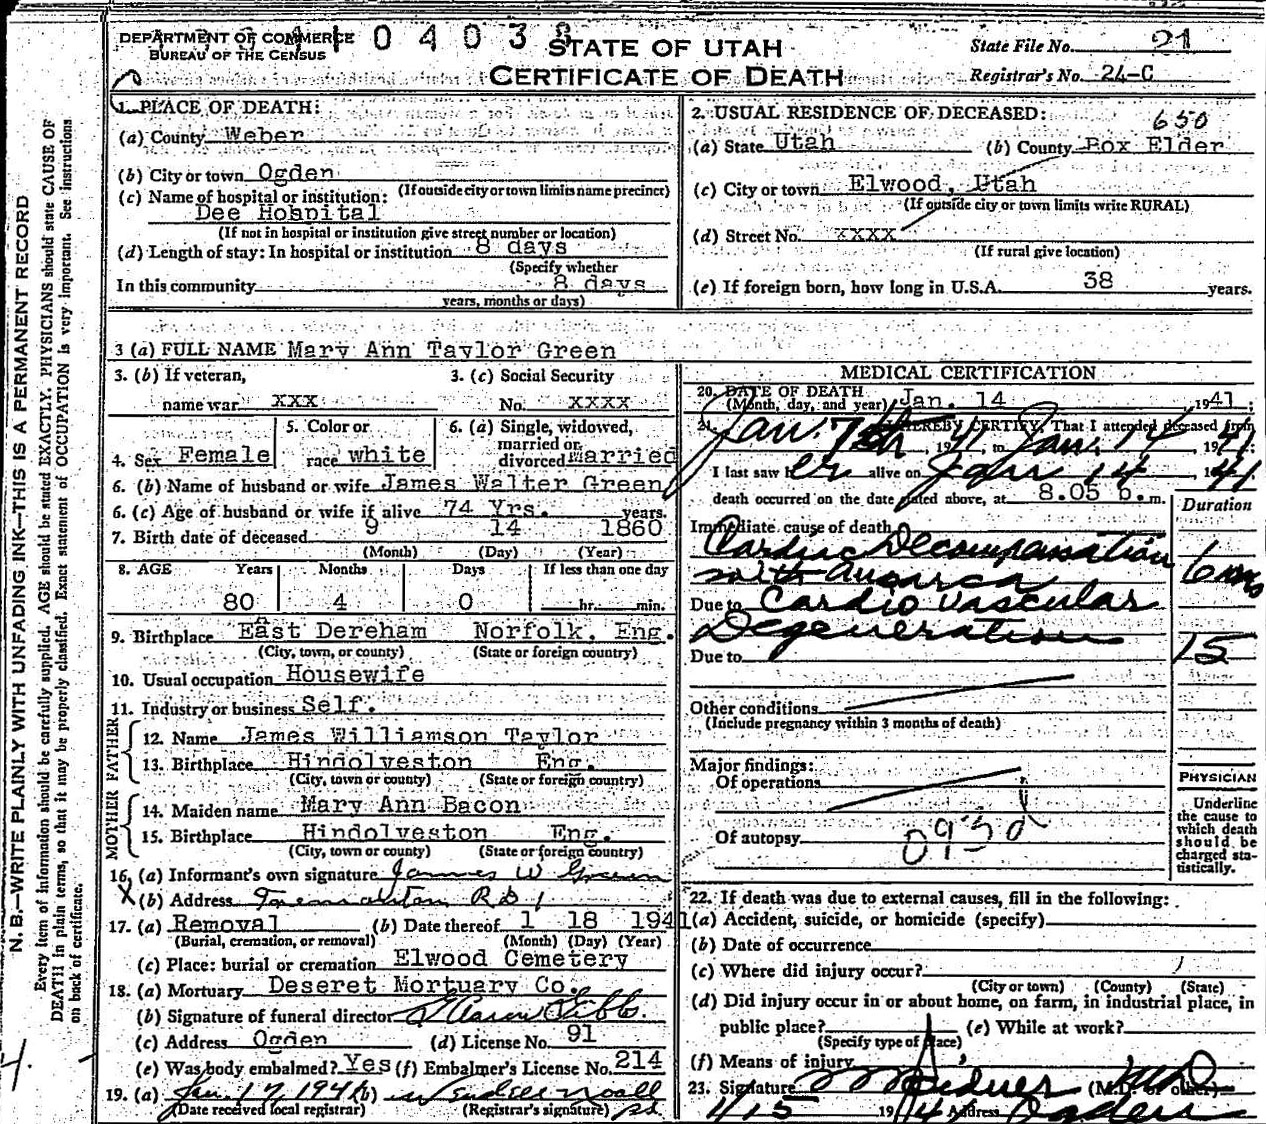 DEPARTMENT OF COMMERCE
BUREAU OF THE CENSUS
0 4 0 3 8
STATE OF UTAH
CERTIFICATE OF DEATH
State File No. 21
Registrar's No. 24-C
N. B.—WRITE PLAINLY WITH UNFADING INK—THIS IS A PERMANENT RECORD
Every item of information should be carefully supplied. AGE should be stated EXACTLY. PHYSICIANS should state CAUSE OF
DEATH in plain terms, so that it may be properly classified. Exact statement of OCCUPATION is very important. See instructions
on back of certificate.
1. PLACE OF DEATH:
(a) County Weber
(b) City or town Ogden
(If outside city or town limits name precinct)
(c) Name of hospital or institution:
Dee Hospital
(If not in hospital or institution give street number or location)
(d) Length of stay: In hospital or institution 8 days
(Specify whether
In this community 8 days
years, months or days)
2. USUAL RESIDENCE OF DECEASED:
650
(a) State Utah (b) County Box Elder
(c) City or town Elwood, Utah
(If outside city or town limits write RURAL)
(d) Street No. xxxx
(If rural give location)
(e) If foreign born, how long in U.S.A. 38 years.
3 (a) FULL NAME Mary Ann Taylor Green
3. (b) If veteran, name war xxx
3. (c) Social Security No. xxxx
4. Sex Female
5. Color or race white
6. (a) Single, widowed, married or divorced Married
6. (b) Name of husband or wife James Walter Green
6. (c) Age of husband or wife if alive 74 Yrs. years.
7. Birth date of deceased 9 14 1860
(Month) (Day) (Year)
8. AGE Years Months Days If less than one day
80 4 0 hr. min.
9. Birthplace East Dereham Norfolk, Eng.
(City, town, or county) (State or foreign country)
10. Usual occupation Housewife
11. Industry or business Self.
FATHER
12. Name James Williamson Taylor
13. Birthplace Hindolveston Eng.
(City, town or county) (State or foreign country)
MOTHER
14. Maiden name Mary Ann Bacon
15. Birthplace Hindolveston Eng.
(City, town or county) (State or foreign country)
16. (a) Informant's own signature James W Green
X (b) Address Tremonton RD 1
17. (a) Removal (b) Date thereof 1 18 1941
(Burial, cremation, or removal) (Month) (Day) (Year)
(c) Place: burial or cremation Elwood Cemetery
18. (a) Mortuary Deseret Mortuary Co.
(b) Signature of funeral director
(c) Address Ogden (d) License No. 91
(e) Was body embalmed? Yes (f) Embalmer's License No. 214
19. (a) Jan. 17, 194 (b) Wendell Noall
(Date received local registrar) (Registrar's signature)
MEDICAL CERTIFICATION
20. DATE OF DEATH
(Month, day, and year) Jan. 14, 1941
21. I HEREBY CERTIFY, That I attended deceased from
Jan. 7th, 1941, to Jan. 14, 1941
I last saw her alive on Jan 14 1941
death occurred on the date stated above, at 8.05 p.m.
Duration
Immediate cause of death
Cardiac Decompensation
with Anasarca 6 mos
Due to Cardio vascular
Degeneration 15
Due to
Other conditions
(Include pregnancy within 3 months of death)
Major findings:
Of operations
Of autopsy
093d
PHYSICIAN
Underline
the cause to
which death
should be
charged sta-
tistically.
22. If death was due to external causes, fill in the following:
(a) Accident, suicide, or homicide (specify)
(b) Date of occurrence
(c) Where did injury occur?
(City or town) (County) (State)
(d) Did injury occur in or about home, on farm, in industrial place, in
public place? (e) While at work?
(Specify type of place)
(f) Means of injury
23. Signature (M.D. or other) MD
1/15 1941 Address Ogden